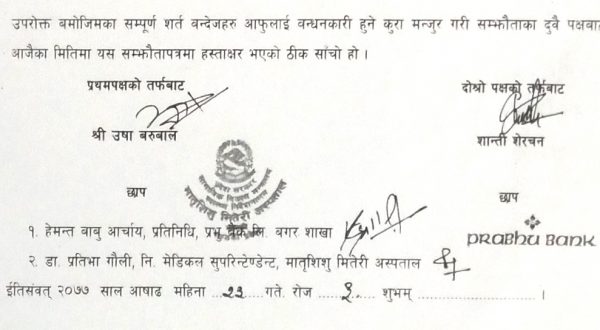 उपरोक्त बमोजिमका सम्पूर्ण शर्त वन्देजहरु आफुलाई वन्धनकारी हुने कुरा मन्जुर गरी सम्झौताका दुवै पक्षबाट
आजैका मितिमा यस सम्झौतापत्रमा हस्ताक्षर भएको ठीक साँचो हो ।
प्रथमपक्षको तर्फबाट
दोश्रो पक्षको तर्फबाट
श्री उषा बरुवाल
शान्ती शेरचन
छाप
छाप
मातृशिशु मितेरी अस्पताल
१. हेमन्त वाबु आचार्य, प्रतिनिधि, प्रभु बैंक लि. बगर शाखा
PRABHU BANK
२. डा. प्रतिभा गौली, नि. मेडिकल सुपरिन्टेण्डेण्ट, मातृशिशु मितेरी अस्पताल
ईतिसंवत् २०७७ साल आषाढ महिना ..२३..... गते. रोज .....१..... शुभम् ............................ ।